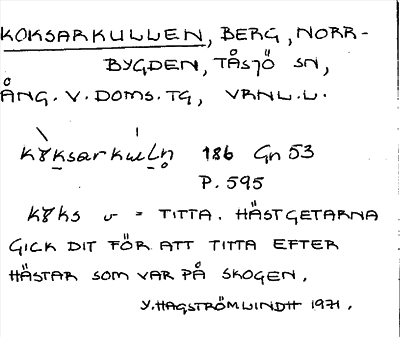 KOKSARKULLEN, BERG, NORR-
BYGDEN, TÅSJÖ SN,
ÅNG. V. DOMS. TG, VRNL.L.
186 Gn 53
P. 595
= TITTA. HÄSTGETARNA
GICK DIT FÖR ATT TITTA EFTER
HÄSTAR SOM VAR PÅ SKOGEN.
Y. HAGSTRÖM LINDH 1971.